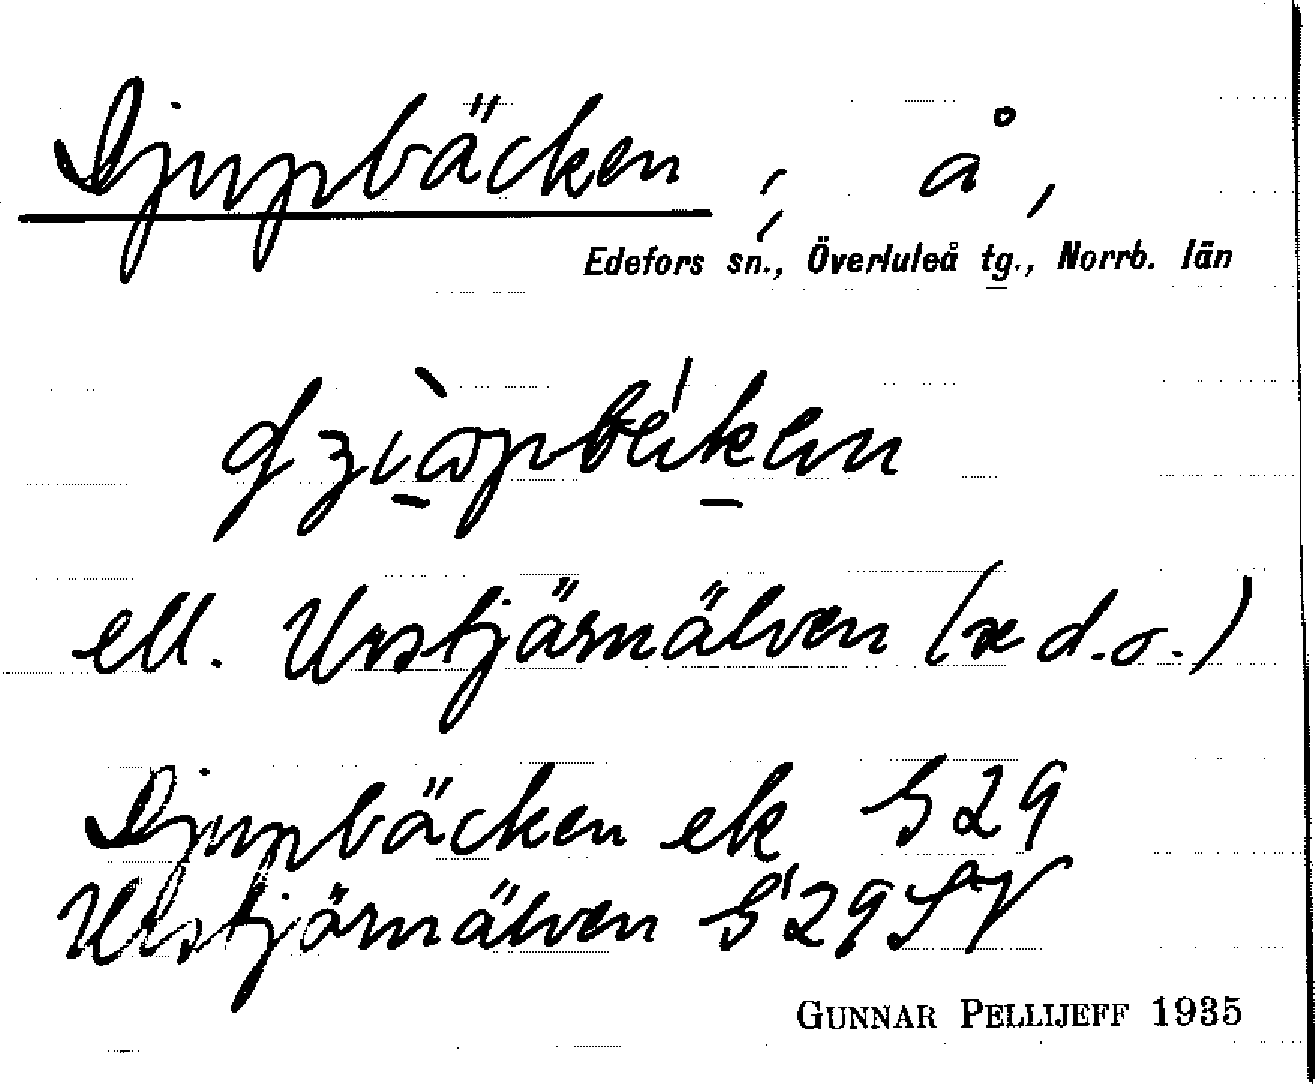 Djupbäcken, å,
Edefors sn., Överluleå tg., Norrb. län
ell. Urstjärnälven (se d.o.)
Djupbäcken ek S 29
Urstjärnälven S 29 SV
GUNNAR PELLIJEFF 1935